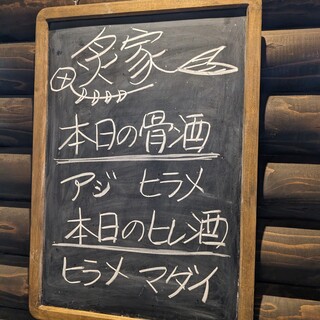 炙家
本日の骨酒
アジ ヒラメ
本日のヒレ酒
ヒラメ マダイ